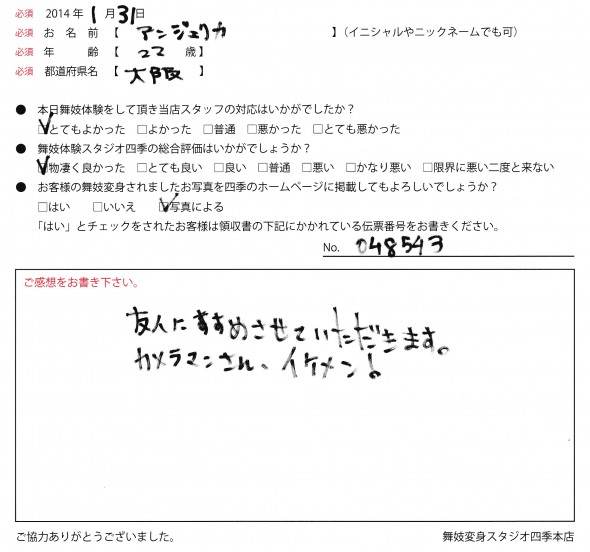 必須 2014 年 1 月 31 日
必須 お 名 前 【 アンジェリカ 】（イニシャルやニックネームでも可）
必須 年 齢 【 22 歳】
必須 都道府県名 【 大阪 】
● 本日舞妓体験をして頂き当店スタッフの対応はいかがでしたか？
□とてもよかった □よかった □普通 □悪かった □とても悪かった
● 舞妓体験スタジオ四季の総合評価はいかがでしょうか？
□物凄く良かった □とても良い □良い □普通 □悪い □かなり悪い □限界に悪い二度と来ない
● お客様の舞妓変身されましたお写真を四季のホームページに掲載してもよろしいでしょうか？
□はい □いいえ □写真による
「はい」とチェックをされたお客様は領収書の下記にかかれている伝票番号をお書きください。
No. 048543
ご感想をお書き下さい。
友人にすすめさせていただきます。
カメラマンさん、イケメン！
ご協力ありがとうございました。 舞妓変身スタジオ四季本店